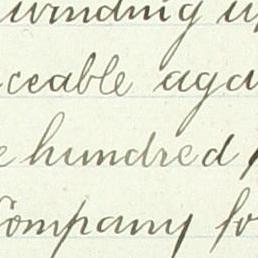 winding u
ceable aga
e hundred
Company fo